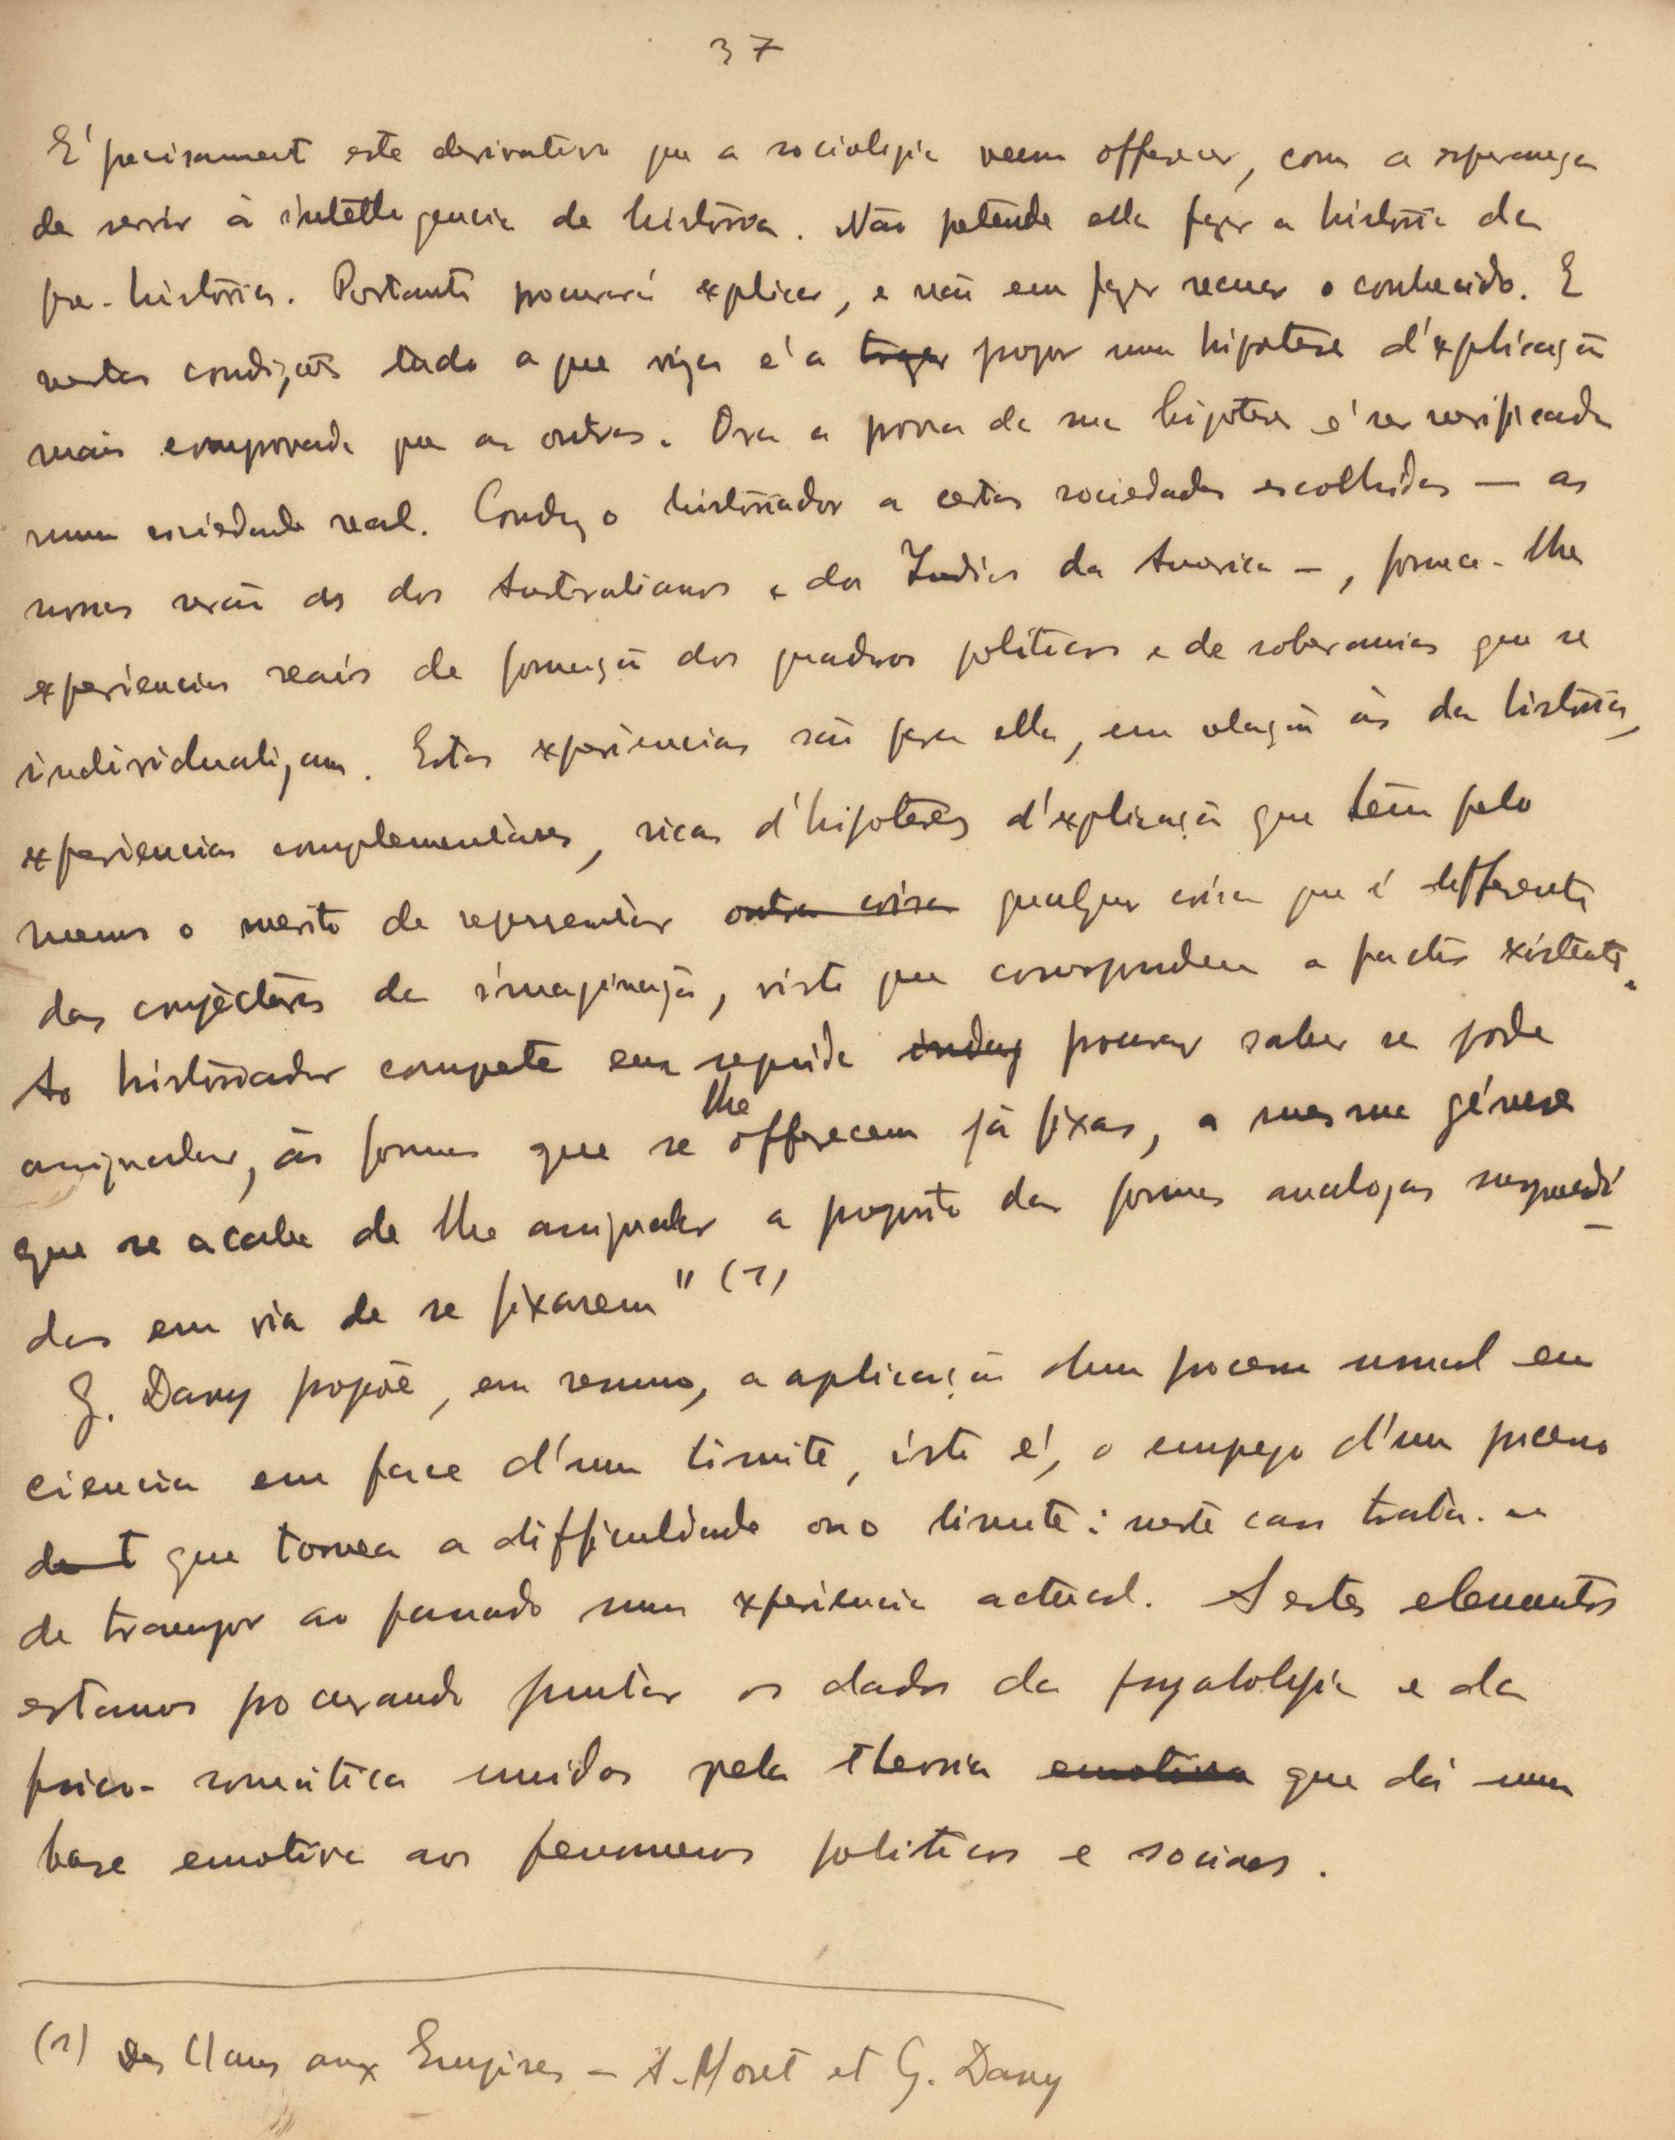 37
É precisament este derivativo que a sociologia veem offerecer, com a esperança
de servir á intelligencia de história. Não pretende ella fazer a história da
pre-história. Portanto procurará explicar, e não em fazer recuar o conhecido. E
nestas condições tudo a que visa é a trazer propor uma hipotese d'explicação
mais comprovada que as outras. Ora a prova de uma hipotese é ser verificada
numa sociedade real. Conduz o historiador a certas sociedades escolhidas — as
nossas serão as dos Australianos e dos Indios da America —, fornece-lhe
experiencias reais de formação dos quadros politicos e de soberanias que se
individualizam. Estas experiencias são para elle, em relação ás da história,
experiencias complementares, ricas d'hipoteses d'explicação que têm pelo
menos o merito de representar outra coisa qualquer coisa que é differente
das conjecturas da imaginação, visto que correspondem a factos existentes.
Ao historiador compete em seguida indag procurar saber se pode
assignalar, ás formas que se lhe offerecem já fixas, a mesma génese
que se acaba de lhe assignalar a proposito das formas analogas surprendi-
das em via de se fixarem" (1)
G. Davy propõe, em resumo, a aplicação dum processo usual em
ciencia em face d'um limite, isto é, o emprego d'um processo
de t que tornea a difficuldade ou o limite: neste caso trata-se
de transpor ao passado uma experiencia actual. A estes elementos
estamos procurando juntar os dados da psycologia e da
psico-somática unidos pela theoria emotiva que dá uma
base emotiva aos fenomenos politicos e sociaes.
(1) Des Clans aux Empires — A. Moret et G. Davy